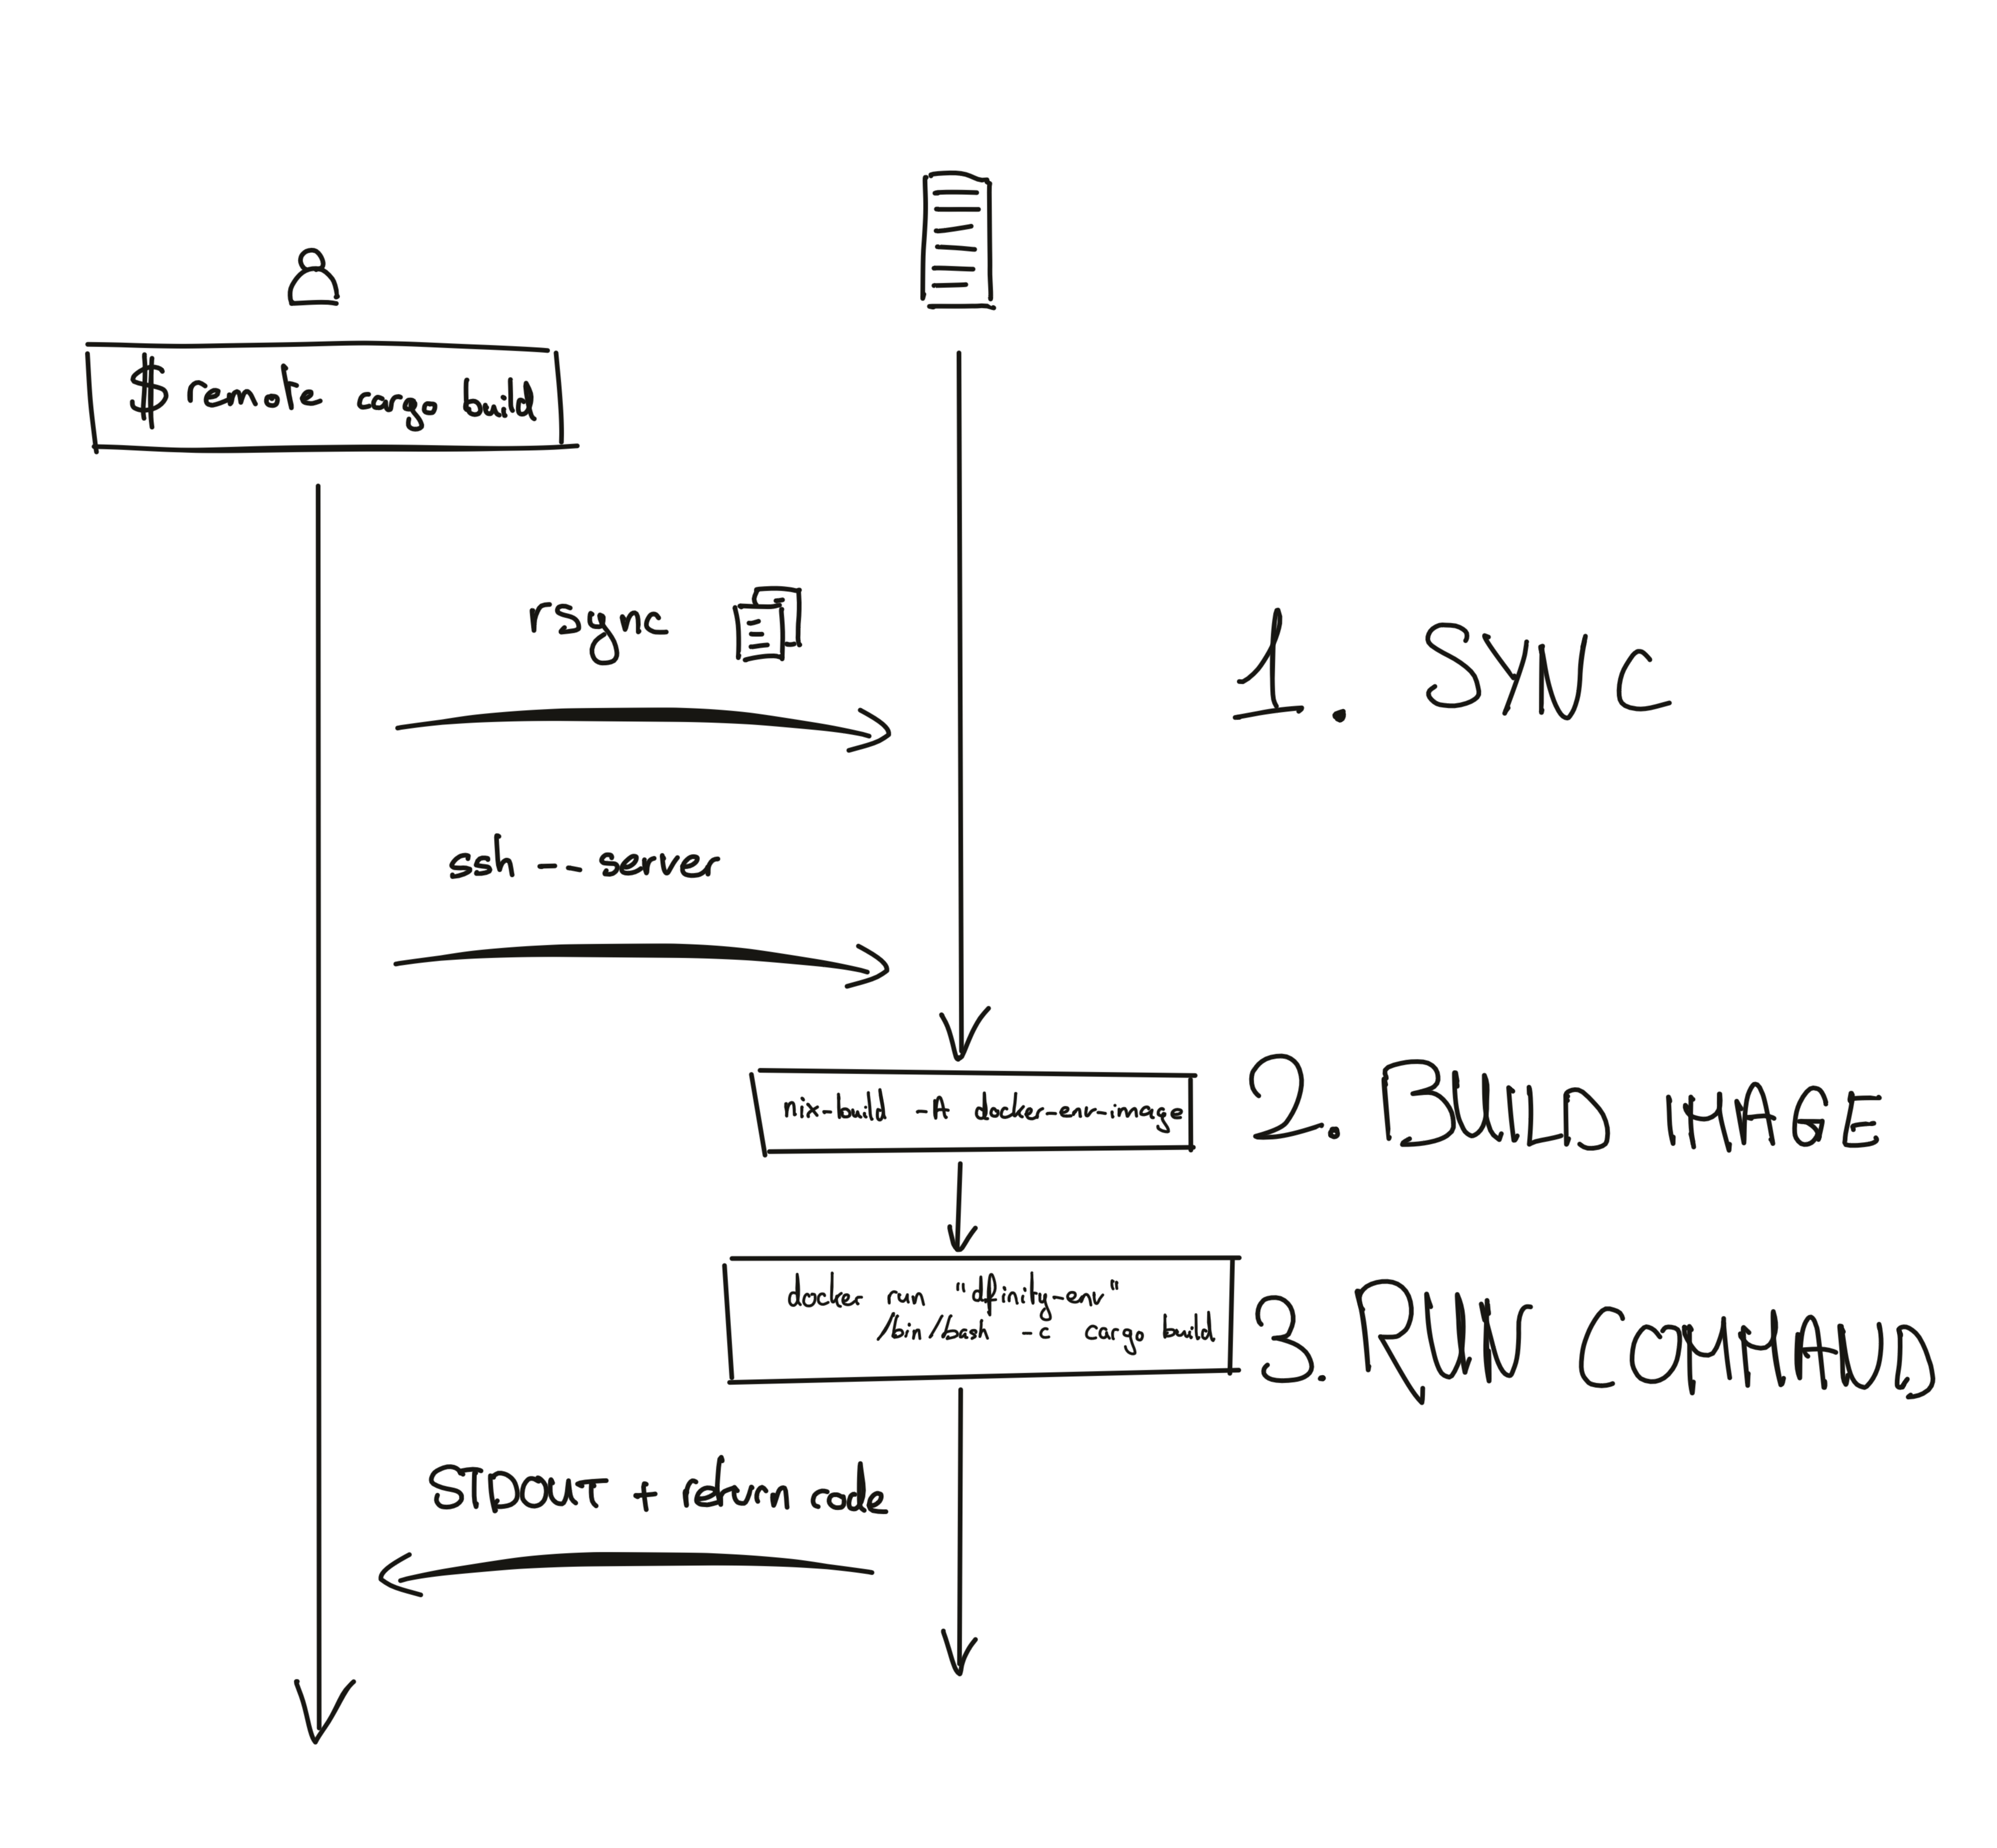 $ remote cargo build
rsync
1. SYNC
ssh -- server
nix-build -A docker-env-image
2. BUILD IMAGE
docker run "dfinity-env"
/bin/bash -c cargo build
3. RUN COMMAND
STDOUT + return code